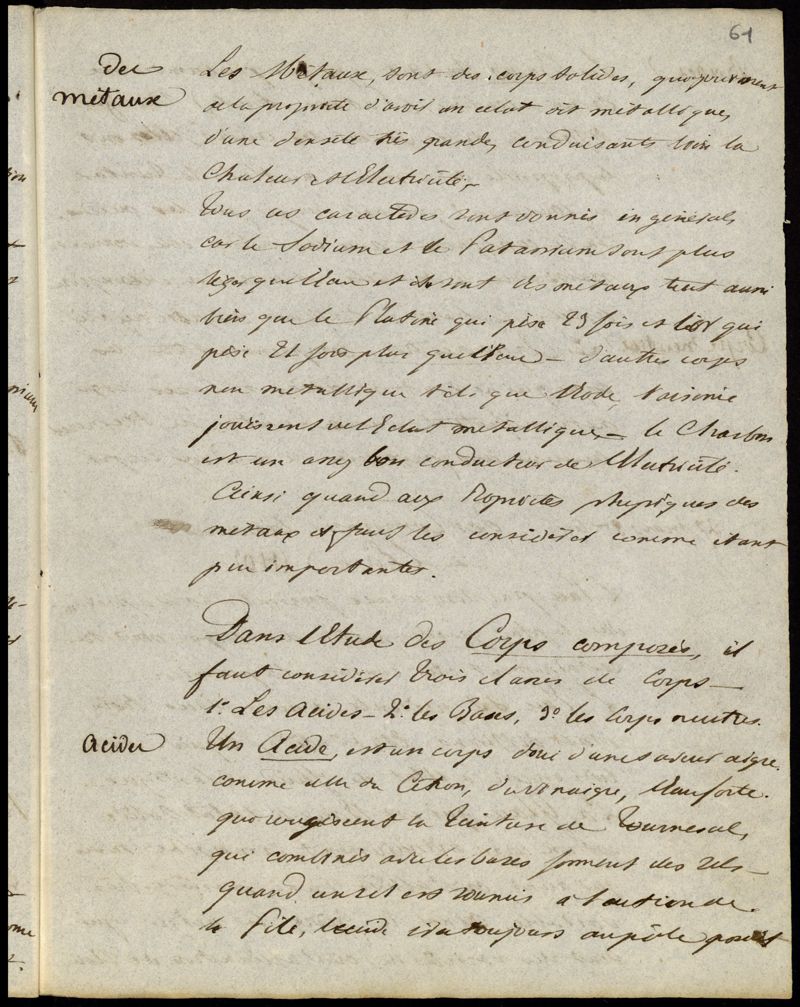 61
Des
métaux
Les Métaux, sont des corps solides,
de la propriété d'avoir un éclat dit métallique,
d'une densité très grande, conduisants bien la
Chaleur et l'Electricité,
Tous ces caractères sont donnés en général,
car le Sodium et le Potassium sont plus
léger que l'Eau et ils sont des métaux tout aussi
bien que le Platine qui pèse 23 fois et l'or qui
pèse 21 fois plus que l'eau – d'autres corps
non metallique tels que l'Iode, l'arsenic
jouissent de l'Eclat métallique, – le Charbon
est un assez bon conducteur de l'Electricité.
Ainsi quand aux Propriétés physiques des
métaux il faut les considérer comme étant
peu importantes.
Dans l'Etude des Corps composés, il
faut considérer trois classes de Corps –
1º. Les Acides – 2º. les Bases, 3º. les Corps neutres.
Acides
Un Acide, est un corps doué d'une saveur aigre.
comme celle du Citron, du vinaigre, l'Eau forte.
qui rougissent la Teinture de Tournesol,
qui combinés avec les bases forment des sels –
quand un sel est soumis à l'action de
la Pile, l'acide va toujours au pôle positif